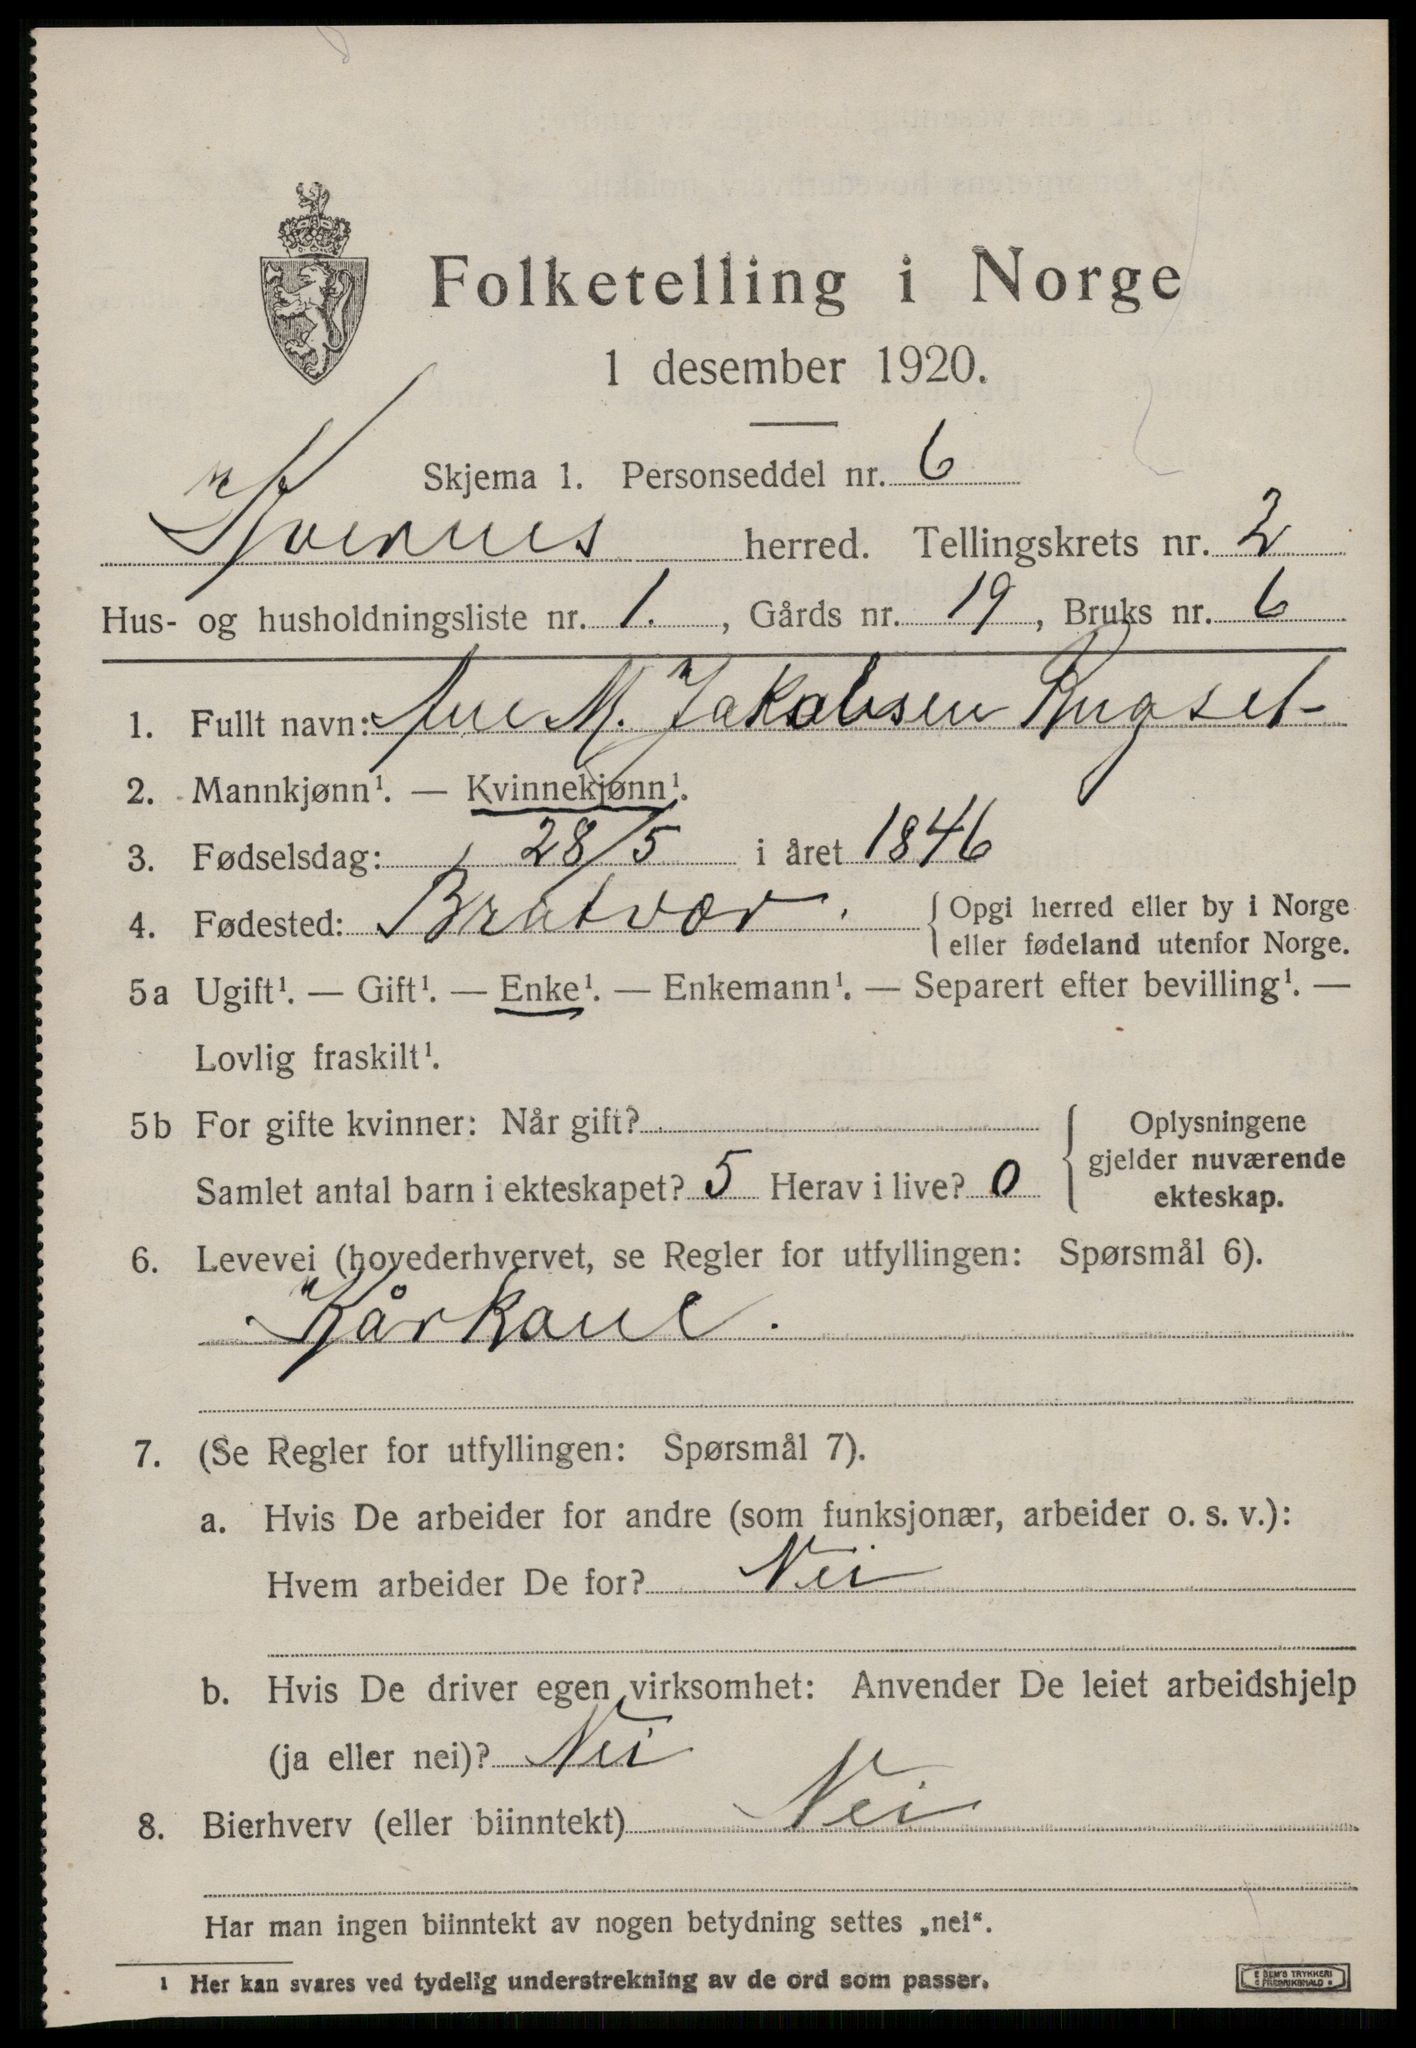 Folketelling i Norge
1 desember 1920.
Skjema 1. Personseddel nr. 6
Kvernes herred. Tellingskrets nr. 2
Hus- og husholdningsliste nr. 1., Gårds nr. 19, Bruks nr. 6
1. Fullt navn: Ane M. Jakobsen Rugset
2. Mannkjønn¹. — Kvinnekjønn¹.
3. Fødselsdag: 28/5 i året 1846
4. Fødested: Bratvær. { Opgi herred eller by i Norge
eller fødeland utenfor Norge.
5a Ugift¹. — Gift¹. — Enke¹. — Enkemann¹. — Separert efter bevilling¹. —
Lovlig fraskilt¹.
5b For gifte kvinner: Når gift?
Samlet antal barn i ekteskapet? 5 Herav i live? 0
Oplysningene
gjelder nuværende
ekteskap.
6. Levevei (hovederhvervet, se Regler for utfyllingen: Spørsmål 6).
Kårkone.
7. (Se Regler for utfyllingen: Spørsmål 7).
a. Hvis De arbeider for andre (som funksjonær, arbeider o. s. v.):
Hvem arbeider De for? Nei
b. Hvis De driver egen virksomhet: Anvender De leiet arbeidshjelp
(ja eller nei)? Nei
8. Bierhverv (eller biinntekt) Nei
Har man ingen biinntekt av nogen betydning settes „nei“.
1 Her kan svares ved tydelig understrekning av de ord som passer.
E SEM'S TRYKKERI
FREDRIKSHALD